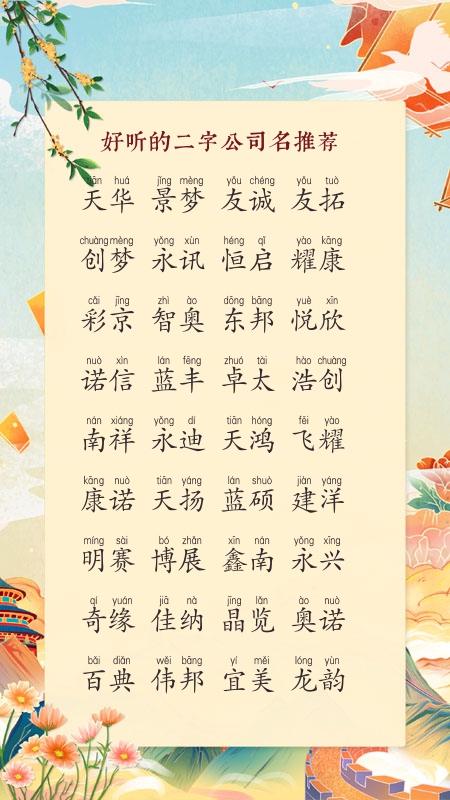 好听的二字公司名推荐
tiān huá jǐng mèng yǒu chéng yǒu tuò
天华 景梦 友诚 友拓
chuàng mèng yǒng xùn héng qǐ yào kāng
创梦 永讯 恒启 耀康
cǎi jīng zhì ào dōng bāng yuè xīn
彩京 智奥 东邦 悦欣
nuò xìn lán fēng zhuó tài hào chuàng
诺信 蓝丰 卓太 浩创
nán xiáng yǒng dí tiān hóng fēi yào
南祥 永迪 天鸿 飞耀
kāng nuò tiān yáng lán shuò jiàn yáng
康诺 天扬 蓝硕 建洋
míng sài bó zhǎn xīn nán yǒng xīng
明赛 博展 鑫南 永兴
qí yuán jiā nà jīng lǎn ào nuò
奇缘 佳纳 晶览 奥诺
bǎi diǎn wěi bāng yí měi lóng yùn
百典 伟邦 宜美 龙韵